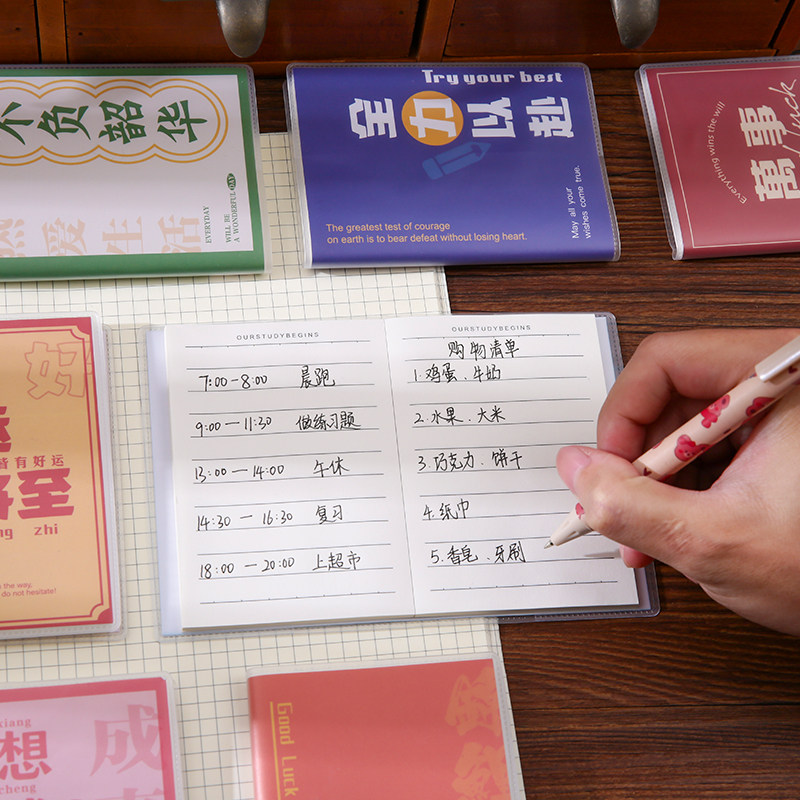 不负韶华
热爱生活
EVERYDAY
WILL BE
A WONDERFUL DAY
Try your best
全力以赴
The greatest test of courage
on earth is to bear defeat without losing heart.
May all your
wishes come true.
Everything wins the will
萬事
Luck
好
皆有好运
至
zhi
the way,
do not hesitate!
OURSTUDYBEGINS
7:00-8:00 晨跑
9:00—11:30 做练习题
13:00—14:00 午休
14:30—16:30 复习
18:00—20:00 上超市
OURSTUDYBEGINS
购物清单
1.鸡蛋、牛奶
2.水果、大米
3.巧克力、饼干
4.纸巾
5.香皂、牙刷
xiang
想
cheng
成
Good Luck